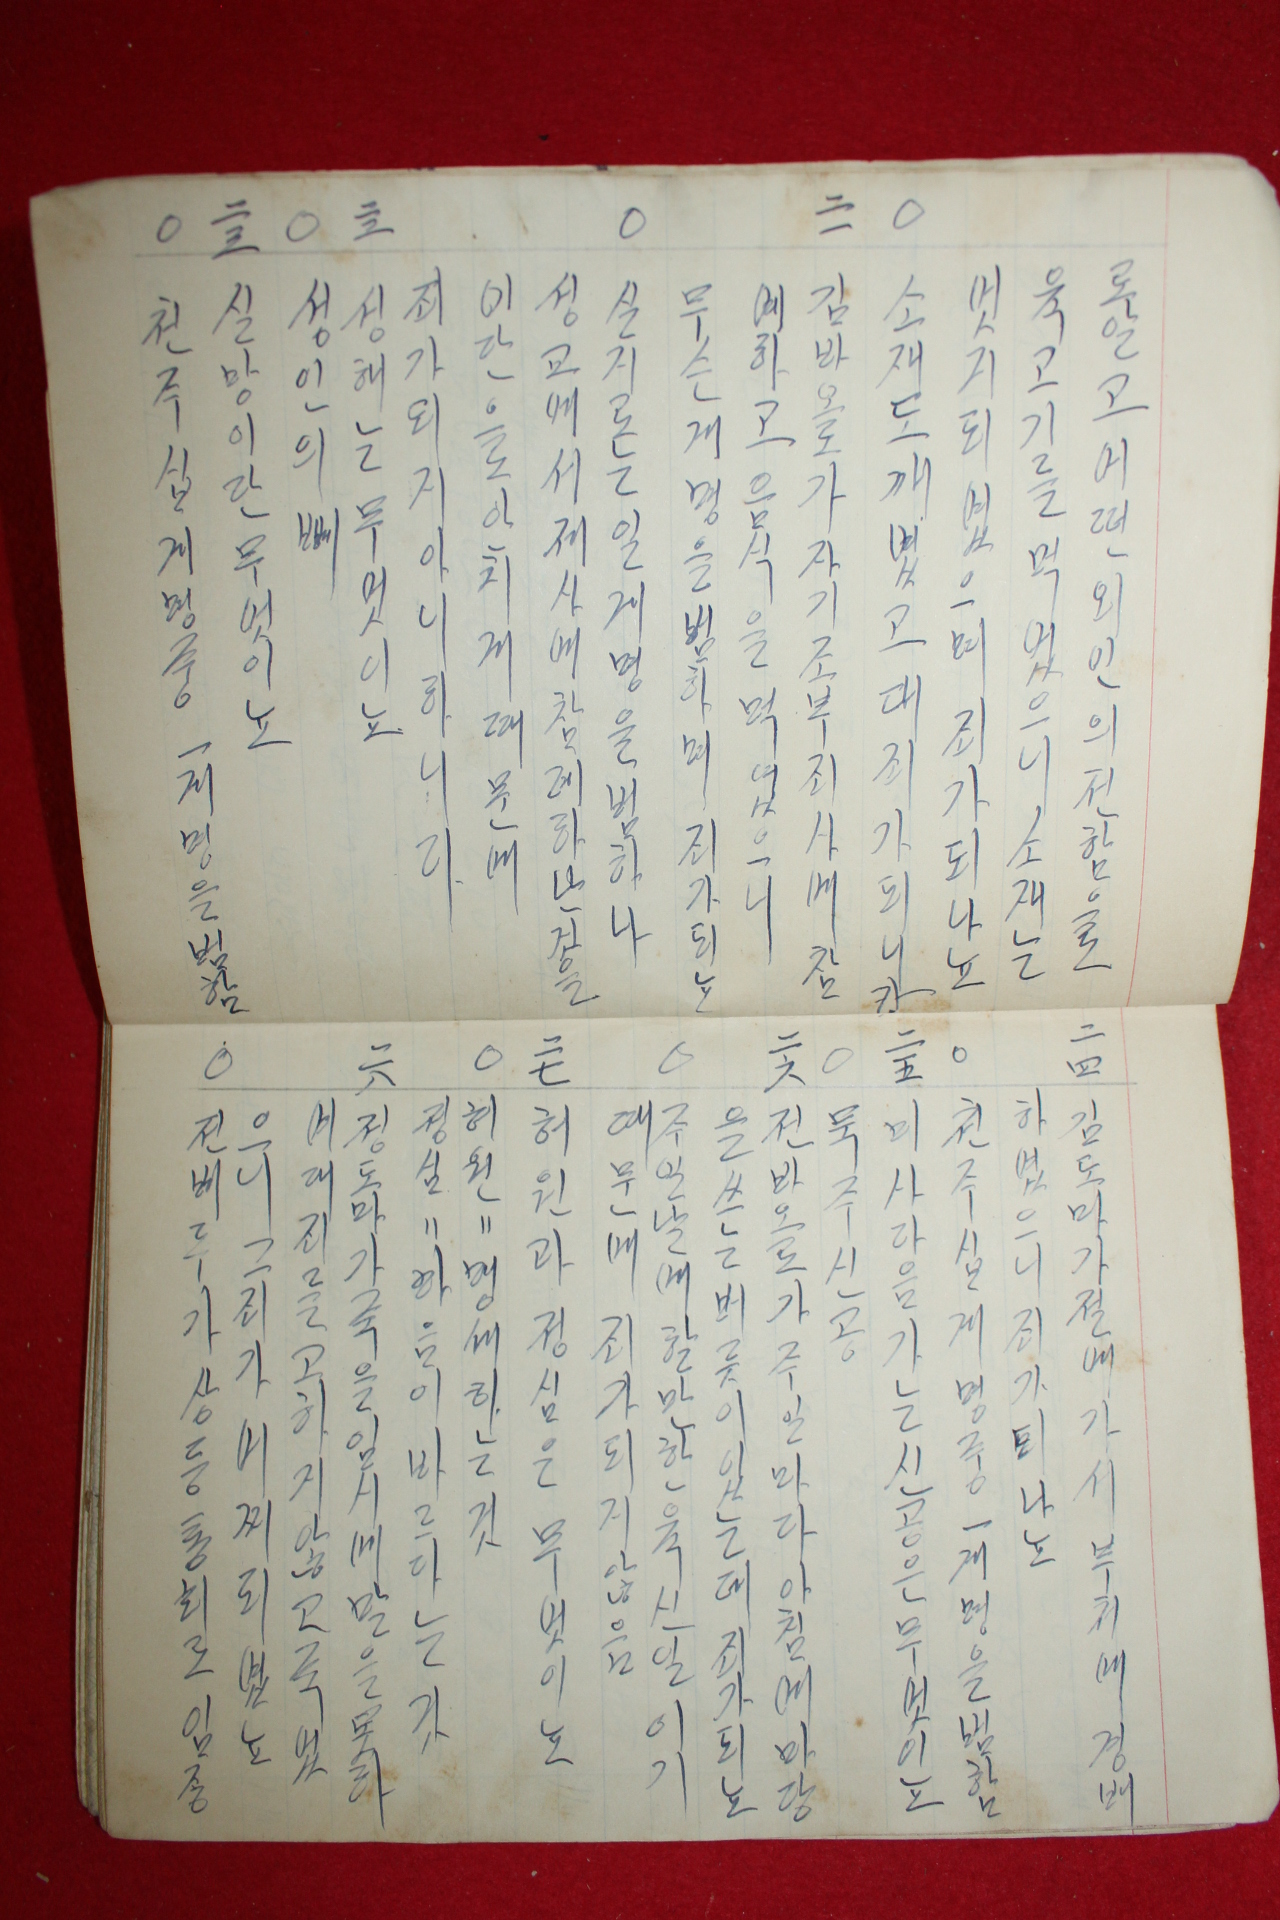 론알고 어떤 외인의 전함을로
육고기를 먹었으니 소재는
엇지되였으며 죄가되나뇨
○ 소재도 깨였고 대죄가되니라
二二 김바오로가 자기조부죄사에 참
예하고 음식을 먹었으니
무슨계명을범하며 죄가되뇨
○ 실지로는 일계명을범하나
성교에서 제사에 참례하난것을
이단으로 안치게 때문에
죄가되지아니하니라.
二三 성해는 무엇이뇨
○ 성인의 뼈
二三 실망이란 무엇이뇨
○ 천주십계명중 一계명을 범함
二四 김도마가 절에가서 부처에 경배
하였으니 죄가되나뇨
○ 천주십계명중 一계명을 범함
二五 미사다음가는 신공은 무엇이뇨
○ 묵주신공
二六 전바오로가 주일마다 아침에 마당
을쓰는버릇이 있는데 죄가되뇨
○ 주일날에 할만한 육신일이기
때문에 죄가되지않음
二七 허원과 정심은 무엇이뇨
○ 허원=맹세하는것
정심=마음이 바르다는것
二六 정도마가 죽을임시에 말을못하
여 대죄를 고하지않고 죽엇
으니 그죄가 어찌되였뇨
○ 전베두가 상등통회로 임종